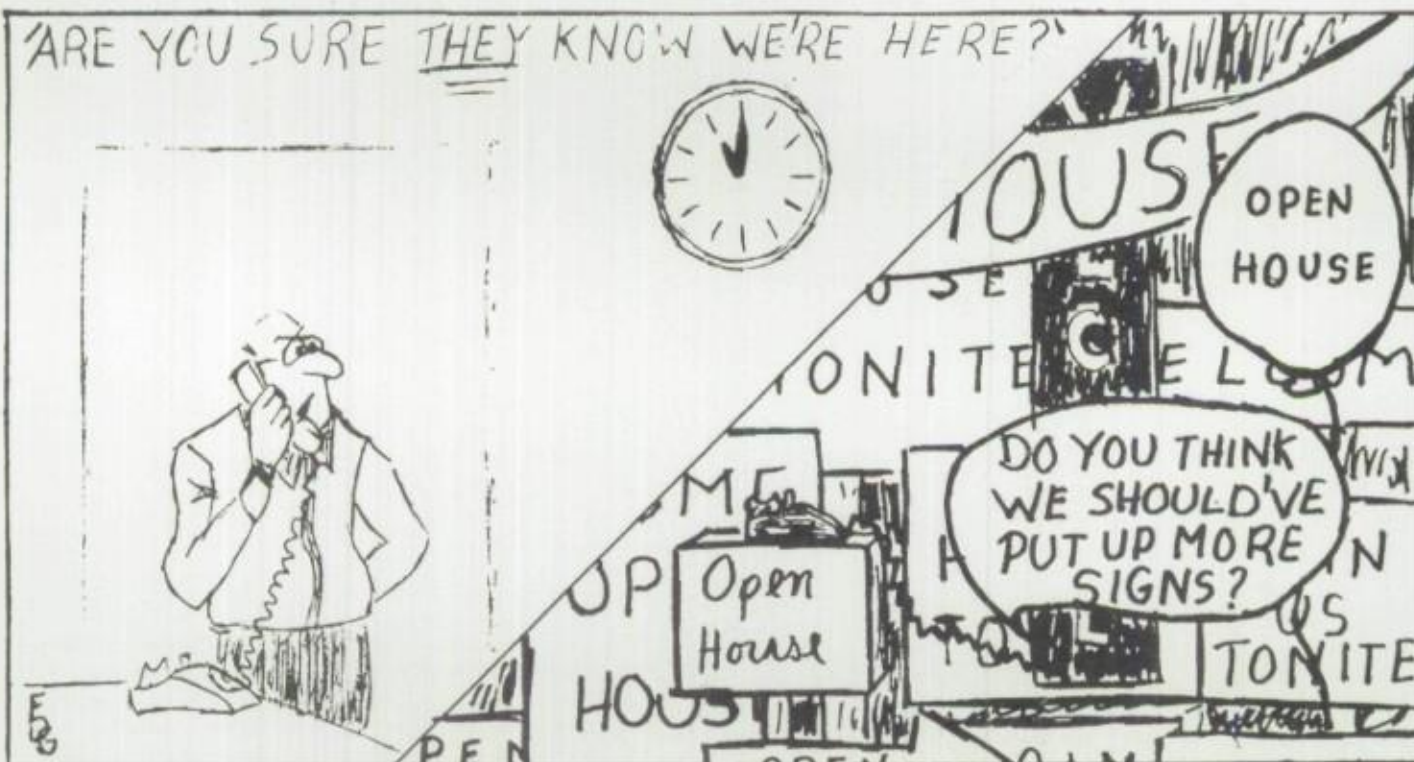 'ARE YOU SURE THEY KNOW WE'RE HERE?'
OUSE
OPEN
HOUSE
USE
TONITE
ELCOM
DO YOU THINK
WE SHOULD'VE
PUT UP MORE
SIGNS?
OME
OP
Open
House
HOUS
H
TO
IN
US
TONITE
PEN
OPEN